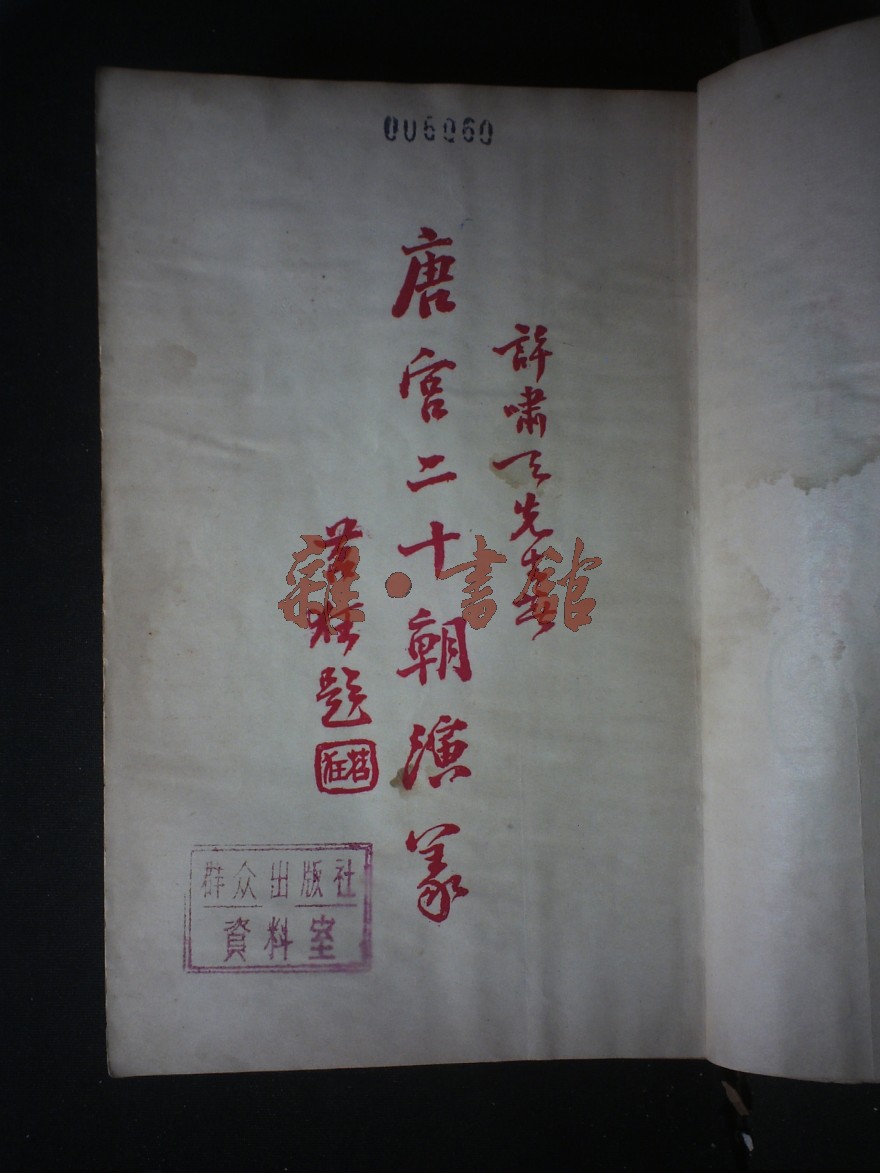 006060
許嘯天先生著
唐宮二十朝演義
若狂題
若狂
雜·書館
群众出版社
資料室